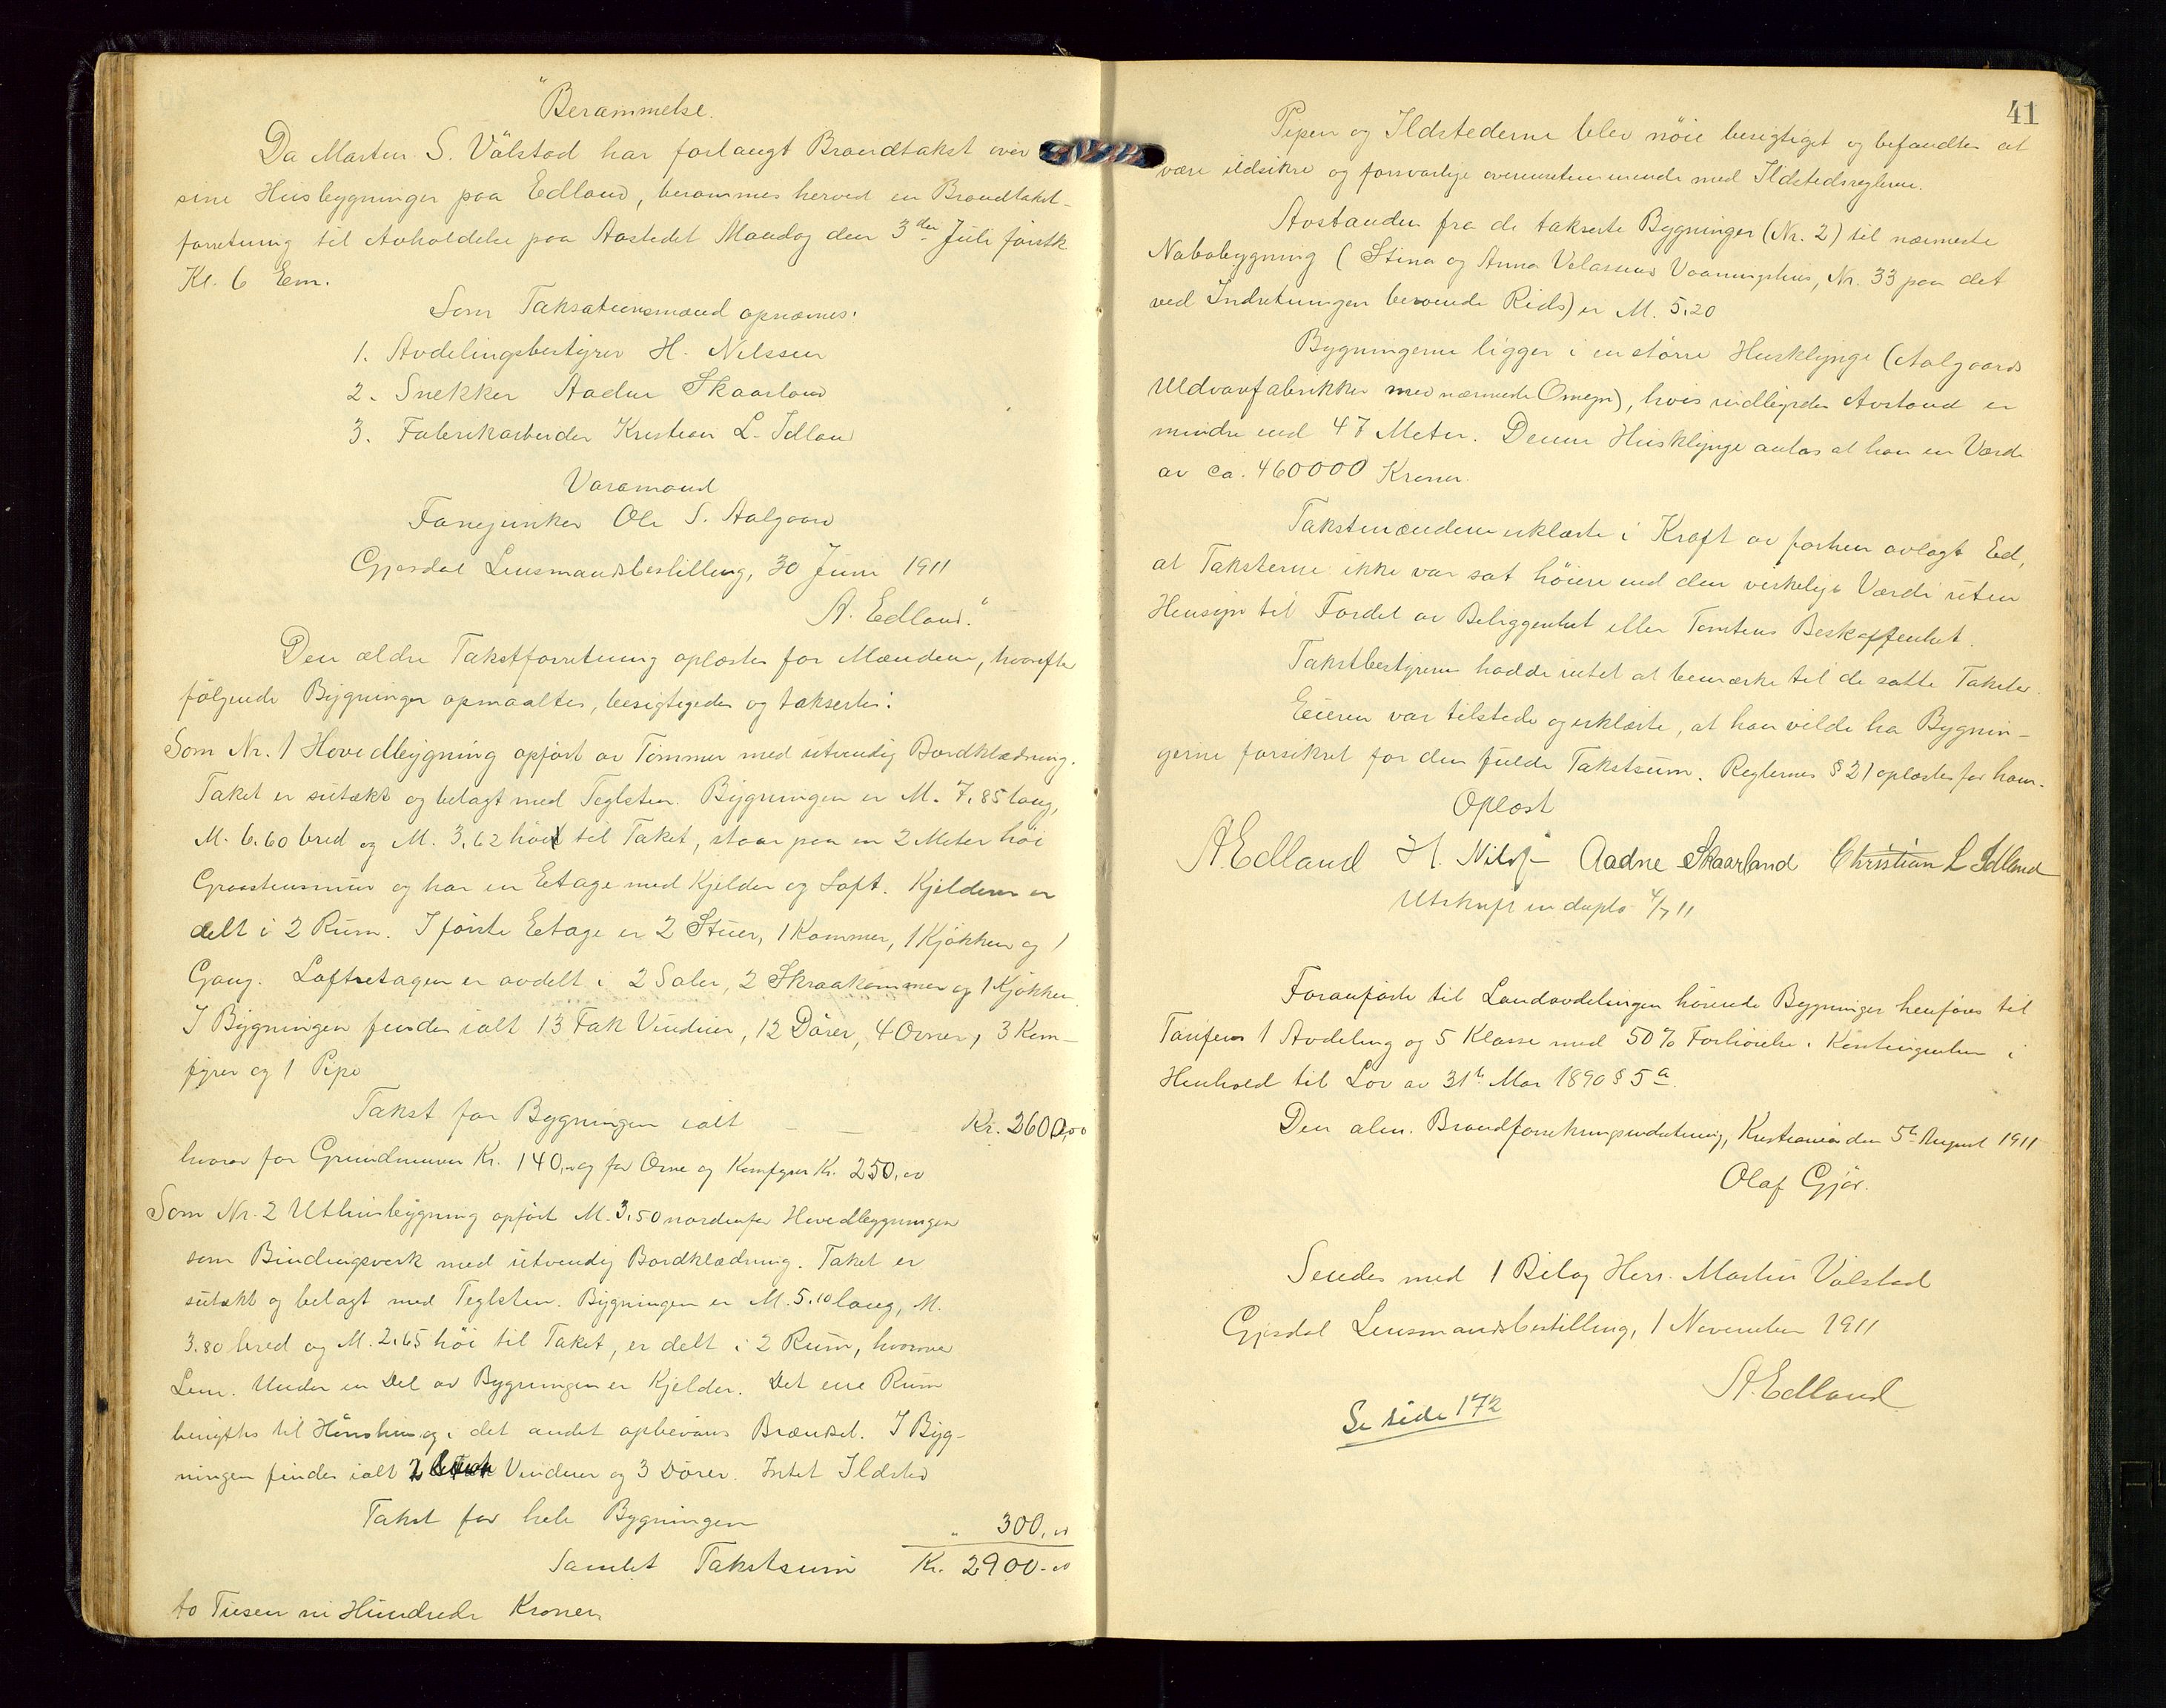 "Berammelse.
Da Martin S. Válstad har forlangt Brandtakst over
sine Husbygninger paa Edland, berammes herved en Brandtakst-
forretning til Avholdelse paa Aastedet Mandag den 3die Juli førstk
Kl. 6 Em.
Som Taksationsmænd opnævnes:
1. Avdelingsbestyrer H. Nilssen
2. Snekker Aadne Skaarland
3. Fabrikarbeider Kristian L. Idland
Varamand
Fanejunker Ole S. Aalgaard
Gjesdal Lensmandsbestilling, 30 Juni 1911
A. Edland."
Den ældre Takstforretning oplæstes for Mændene, hvorefter
følgende Bygninger opmaaltes, besigtigedes og taksertes:
Som Nr. 1 Hovedbygning opført av Tømmer med utvendig Bordklædning.
Taket er sutækt og belagt med Teglsten. Bygningen er M. 7,85 lang,
M. 6.60 bred og M. 3,62 høi til Taket, staar paa en 2 Meter høi
Graastensmur og har en Etage med Kjelder og Loft. Kjelderen er
delt i 2 Rum. I første Etage er 2 Stuer, 1 Kammer, 1 Kjøkken og 1
Gang. Loftsetagen er avdelt i 2 Saler, 2 Skraakammer og 1 Kjøkken.
I Bygningen findes ialt 13 Fak Vinduer, 12 Dører, 4 Ovner, 3 Kom-
fyrer og 1 Pipe
Takst for Bygningen ialt - - Kr. 2600,00
hvorav for Grundmuren Kr. 140,00 og for Ovne og Komfyrer Kr. 250,00
Som Nr. 2 Uthusbygning opført M. 3,50 nordenfor Hovedbygningen
som Bindingsverk med utvendig Bordklædning. Taket er
sutækt og belagt med Teglsten. Bygningen er M. 5.10 lang, M.
3.80 bred og M. 2,65 høi til Taket, er delt i 2 Rum, hvorover
Lem. Under en Del av Bygningen er Kjelder. Det ene Rum
benyttes til Hønshus og i det andet opbevares Brændsel. I Byg-
ningen findes ialt 2 Vinduer og 3 Dører. Intet Ildsted
Takst for hele Bygningen " 300,00
Samlet Takstsum Kr. 2900-00
to Tusen ni Hundrede Kroner.
41
Pipen og Ildstederne blev nøie besigtiget og befandtes at
være ildsikre og forsvarlige overensstemmende med Ildstedsreglerne.
Avstanden fra de takserte Bygninger (Nr. 2) til nærmeste
Nabobygning (Stina og Anna Vaaningshus, Nr. 33 paa det
ved Indretningen beroende Rids) er M. 5.20
Bygningerne ligger i en større Husklynge (Aalgaards
Uldvarefabrikker med nærmeste Omegn), hvis indbyrdes Avstand er
mindre end 47 Meter. Denne Husklynge antas at ha en Værdi
av ca. 460000 Kroner.
Takstmændene erklærte i Kraft av forhen avlagt Ed,
at Taksterne ikke var sat høiere end den virkelige Værdi uten
Hensyn til Fordel av Beliggenhet eller Tomtens Beskaffenhet.
Takstbestyreren hadde intet at bemærke til de satte Takster.
Eieren var tilstede og erklærte, at han vilde ha Bygnin-
gerne forsikret for den fulde Takstsum. Reglernes § 21 oplæstes for ham.
Oplæst
A. Edland H. Nilss Aadne Skaarland Christian L Idland
Utskrift in duplo 4/7 11
Foranførte til Landavdelingen hørende Bygninger henføres til
Tarifens 1 Avdeling og 5 Klasse med 50% Forhøielse i Kontingenten i
Henhold til Lov av 31te Mai 1890 § 5 a.
Den alm. Brandforsikringsindretning, Kristiania den 5te August 1911
Olaf Gjør.
Sendes med 1 Bilag Herr. Martin Válstad
Gjesdal Lensmandsbestilling, 1 November 1911
A. Edland
Se side 172